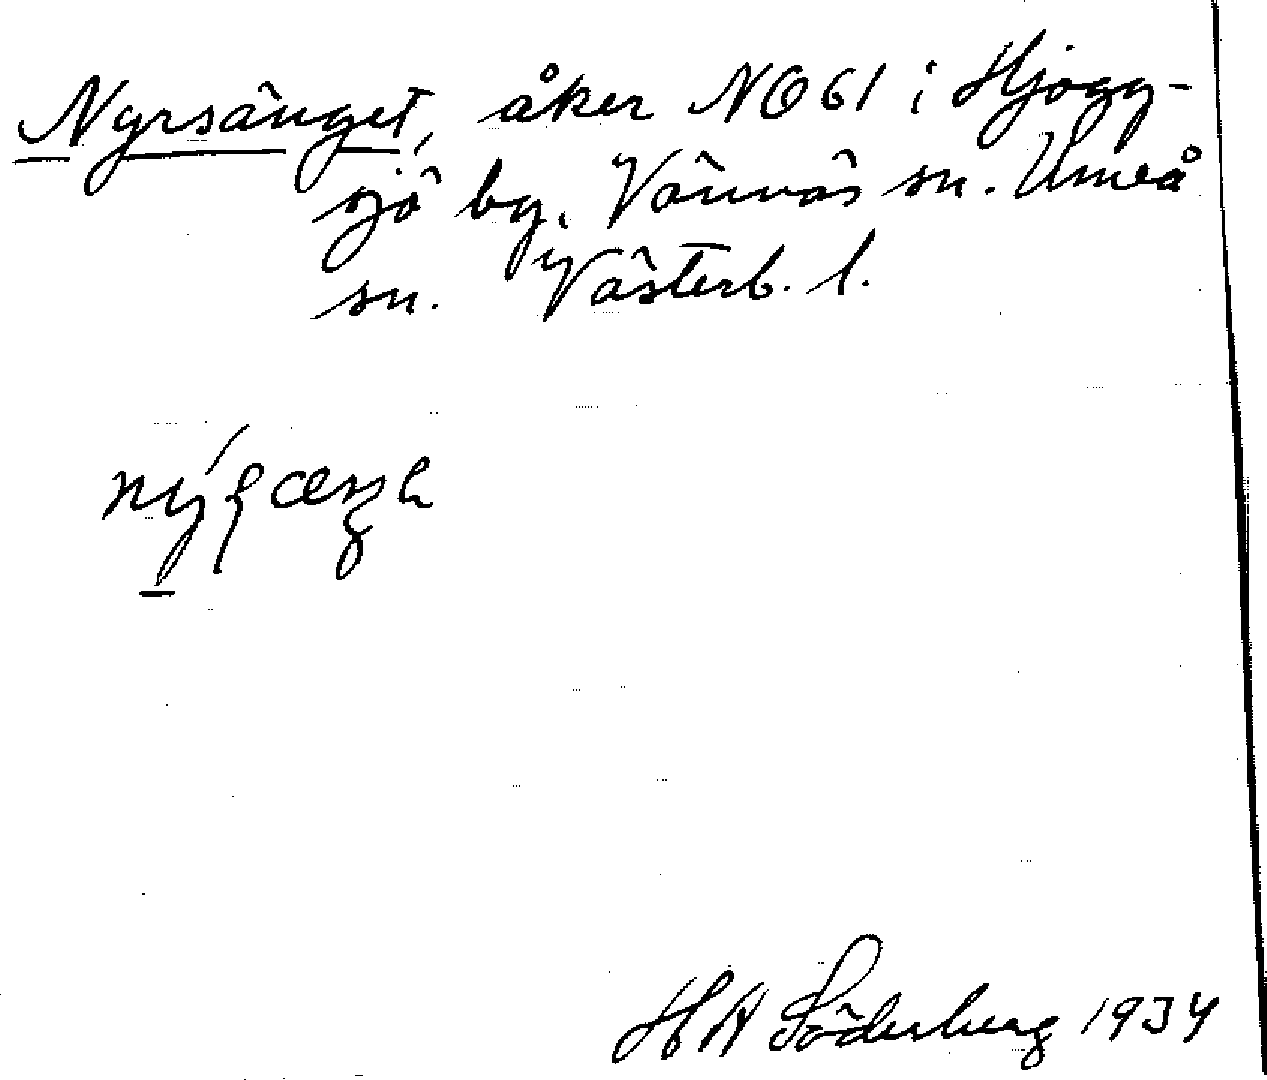 Nyrsänget, åker NO61 i Hjogg-
sjö by, Vännäs sn. Umeå
sn. Västerb. l.
H A Söderberg 1934